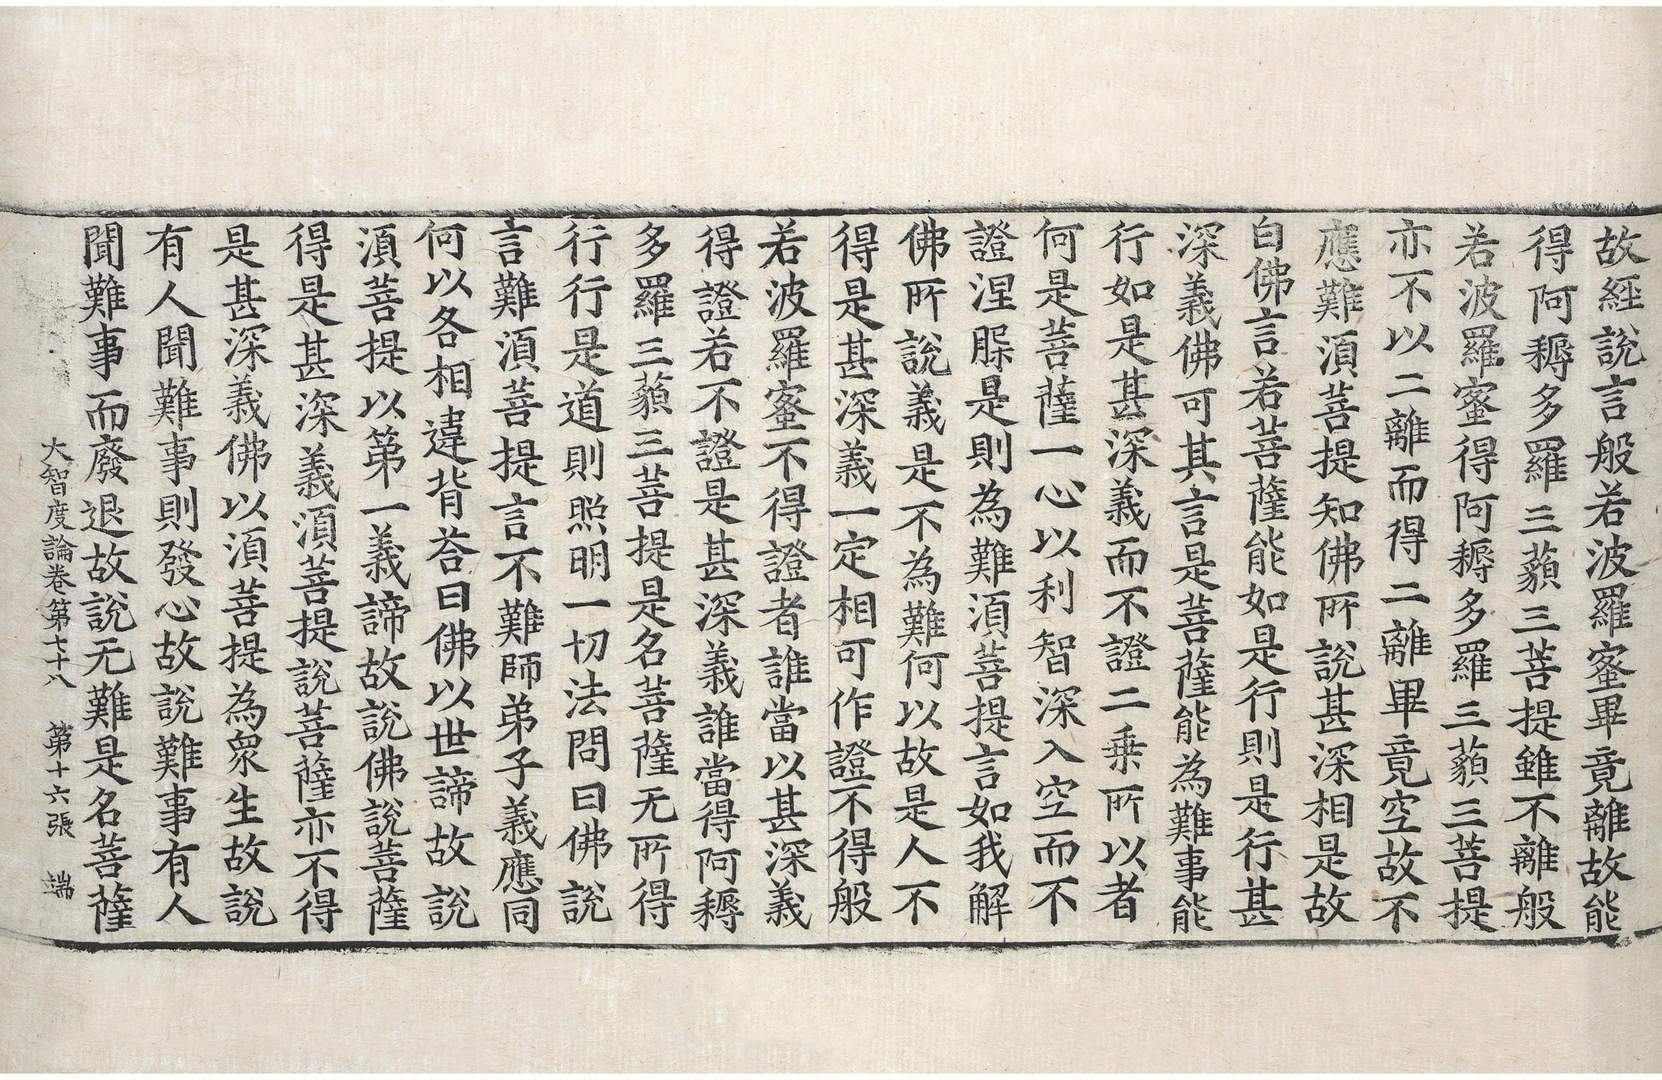 故經說言般若波羅蜜畢竟離故能
得阿耨多羅三藐三菩提雖不離般
若波羅蜜得阿耨多羅三藐三菩提
亦不以二離而得二離畢竟空故不
應難湏菩提知佛所說甚深相是故
白佛言若菩薩能如是行則是行甚
深義佛可其言是菩薩能為難事能
行如是甚深義而不證二乗所以者
何是菩薩一心以利智深入空而不
證涅槃是則為難湏菩提言如我解
佛所說義是不為難何以故是人不
得是甚深義一定相可作證不得般
若波羅蜜不得證者誰當以甚深義
得證若不證是甚深義誰當得阿耨
多羅三藐三菩提是名菩薩无所得
行行是道則照明一切法問曰佛說
言難湏菩提言不難師弟子義應同
何以各相違背荅曰佛以世諦故說
湏菩提以第一義諦故說佛說菩薩
得是甚深義湏菩提說菩薩亦不得
是甚深義佛以湏菩提為衆生故說
有人聞難事則發心故說難事有人
聞難事而廢退故說无難是名菩薩
大智度論卷第七十八 第十六張 端